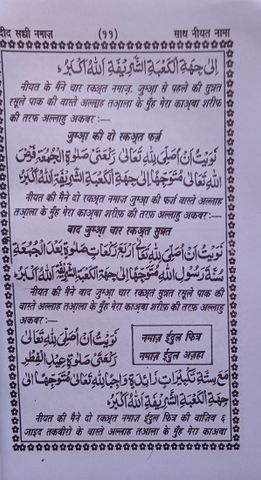 दीद सच्ची नमाज़ (११) साथ नीयत नामा
اِلٰى جِهَةِ الْكَعْبَةِ الشَّرِيْفَةِ اَللّٰهُ اَكْبَرُ
नीयत की मैंने चार रकअ़त नमाज़ जुमआ़ से पहले की सुन्नत
रसूले पाक की वास्ते अल्लाह तआ़ला के मुँह मेरा काअ़बा शरीफ़
की तरफ़ अल्लाहु अकबर :—
जुमआ़ की दो रकअ़त फर्ज़
نَوَيْتُ اَنْ اُصَلِّىَ لِلّٰهِ تَعَالٰى رَكْعَتَىْ صَلٰوةِ الْجُمُعَةِ فَرْضَ
اللّٰهِ تَعَالٰى مُتَوَجِّهًا اِلٰى جِهَةِ الْكَعْبَةِ الشَّرِيْفَةِ اَللّٰهُ اَكْبَرُ
नीयत की मैंने दो रकअ़त नमाज़ जुमआ़ की फर्ज़ वास्ते अल्लाह
तआ़ला के मुँह मेरा काअ़बा शरीफ़ की तरफ़ अल्लाहु अकबर :—
बाद जुमआ़ चार रकअ़त सुन्नत
نَوَيْتُ اَنْ اُصَلِّىَ لِلّٰهِ تَعَالٰى اَرْبَعَ رَكَعَاتِ صَلٰوةِ بَعْدَ الْجُمُعَةِ
سُنَّةُ رَسُوْلِ اللّٰهِ مُتَوَجِّهًا اِلٰى جِهَةِ الْكَعْبَةِ الشَّرِيْفَةِ اَللّٰهُ اَكْبَرُ
नीयत की मैंने बाद जुमआ़ चार रकअ़त सुन्नत रसूले पाक की
वास्ते अल्लाह तआ़ला के मुँह मेरा काअ़बा शरीफ़ की तरफ़ अल्लाहु
अकबर :—
نَوَيْتُ اَنْ اُصَلِّىَ لِلّٰهِ تَعَالٰى
नमाज़ ईदुल फित्र
رَكْعَتَىْ صَلٰوةِ عِيْدِ الْفِطْرِ
नमाज़ ईदुल अज़हा
مَعَ سِتَّةِ تَكْبِيْرَاتٍ زَائِدَةٍ وَاجِبًا لِلّٰهِ تَعَالٰى مُتَوَجِّهًا اِلٰى
جِهَةِ الْكَعْبَةِ الشَّرِيْفَةِ اَللّٰهُ اَكْبَرُ
नीयत की मैंने दो रकअ़त नमाज़ ईदुल फित्र की वाजिब ६
जाइद तकबीरो के वास्ते अल्लाह तआ़ला के मुँह मेरा काअ़बा